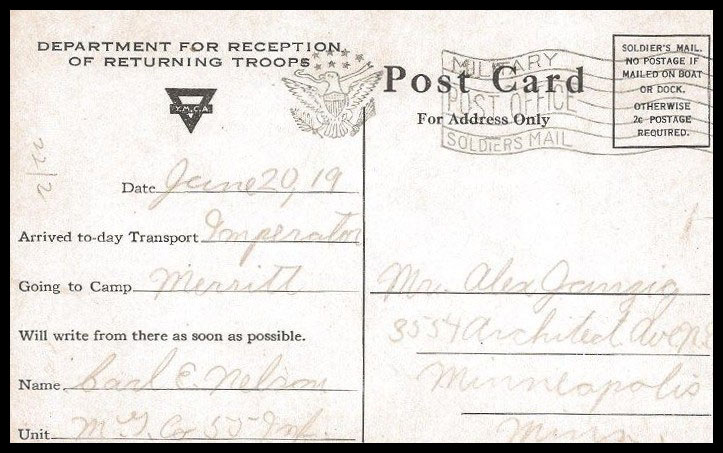 DEPARTMENT FOR RECEPTION
OF RETURNING TROOPS
Y.M.C.A
MILITARY
POST OFFICE
SOLDIERS MAIL
Post Card
For Address Only
SOLDIER'S MAIL.
NO POSTAGE IF
MAILED ON BOAT
OR DOCK.
OTHERWISE
2c POSTAGE
REQUIRED.
2/22
Date June 20, 19
Arrived to-day Transport Imperator
Going to Camp Merritt
Will write from there as soon as possible.
Name Carl E. Nelson
Unit M. G. Co 55 Inf.
Mr. Alex Janzig
3554 Architect Ave N.E
Minneapolis
Minn.